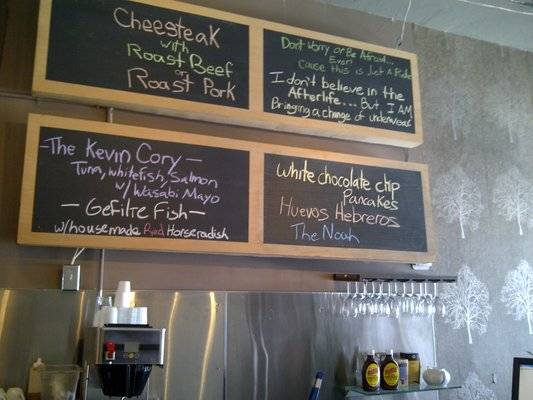 Cheesteak
with
Roast Beef
or
Roast Pork
Don't Worry or Be Afraid...
Ever!
Cause this is Just A Ride
I don't believe in the
Afterlife.... But, I AM
Bringing a change of underwear
- The Kevin Cory -
Tuna, whitefish, Salmon
w/ Wasabi Mayo
- Gefilte Fish -
w/ housemade Red Horseradish
White chocolate chip
Pancakes
Huevos Hebreros
The Noah